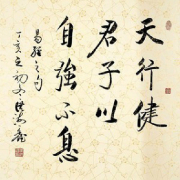 天行健
君子以
自強不息
易經之句
丁亥之初冬